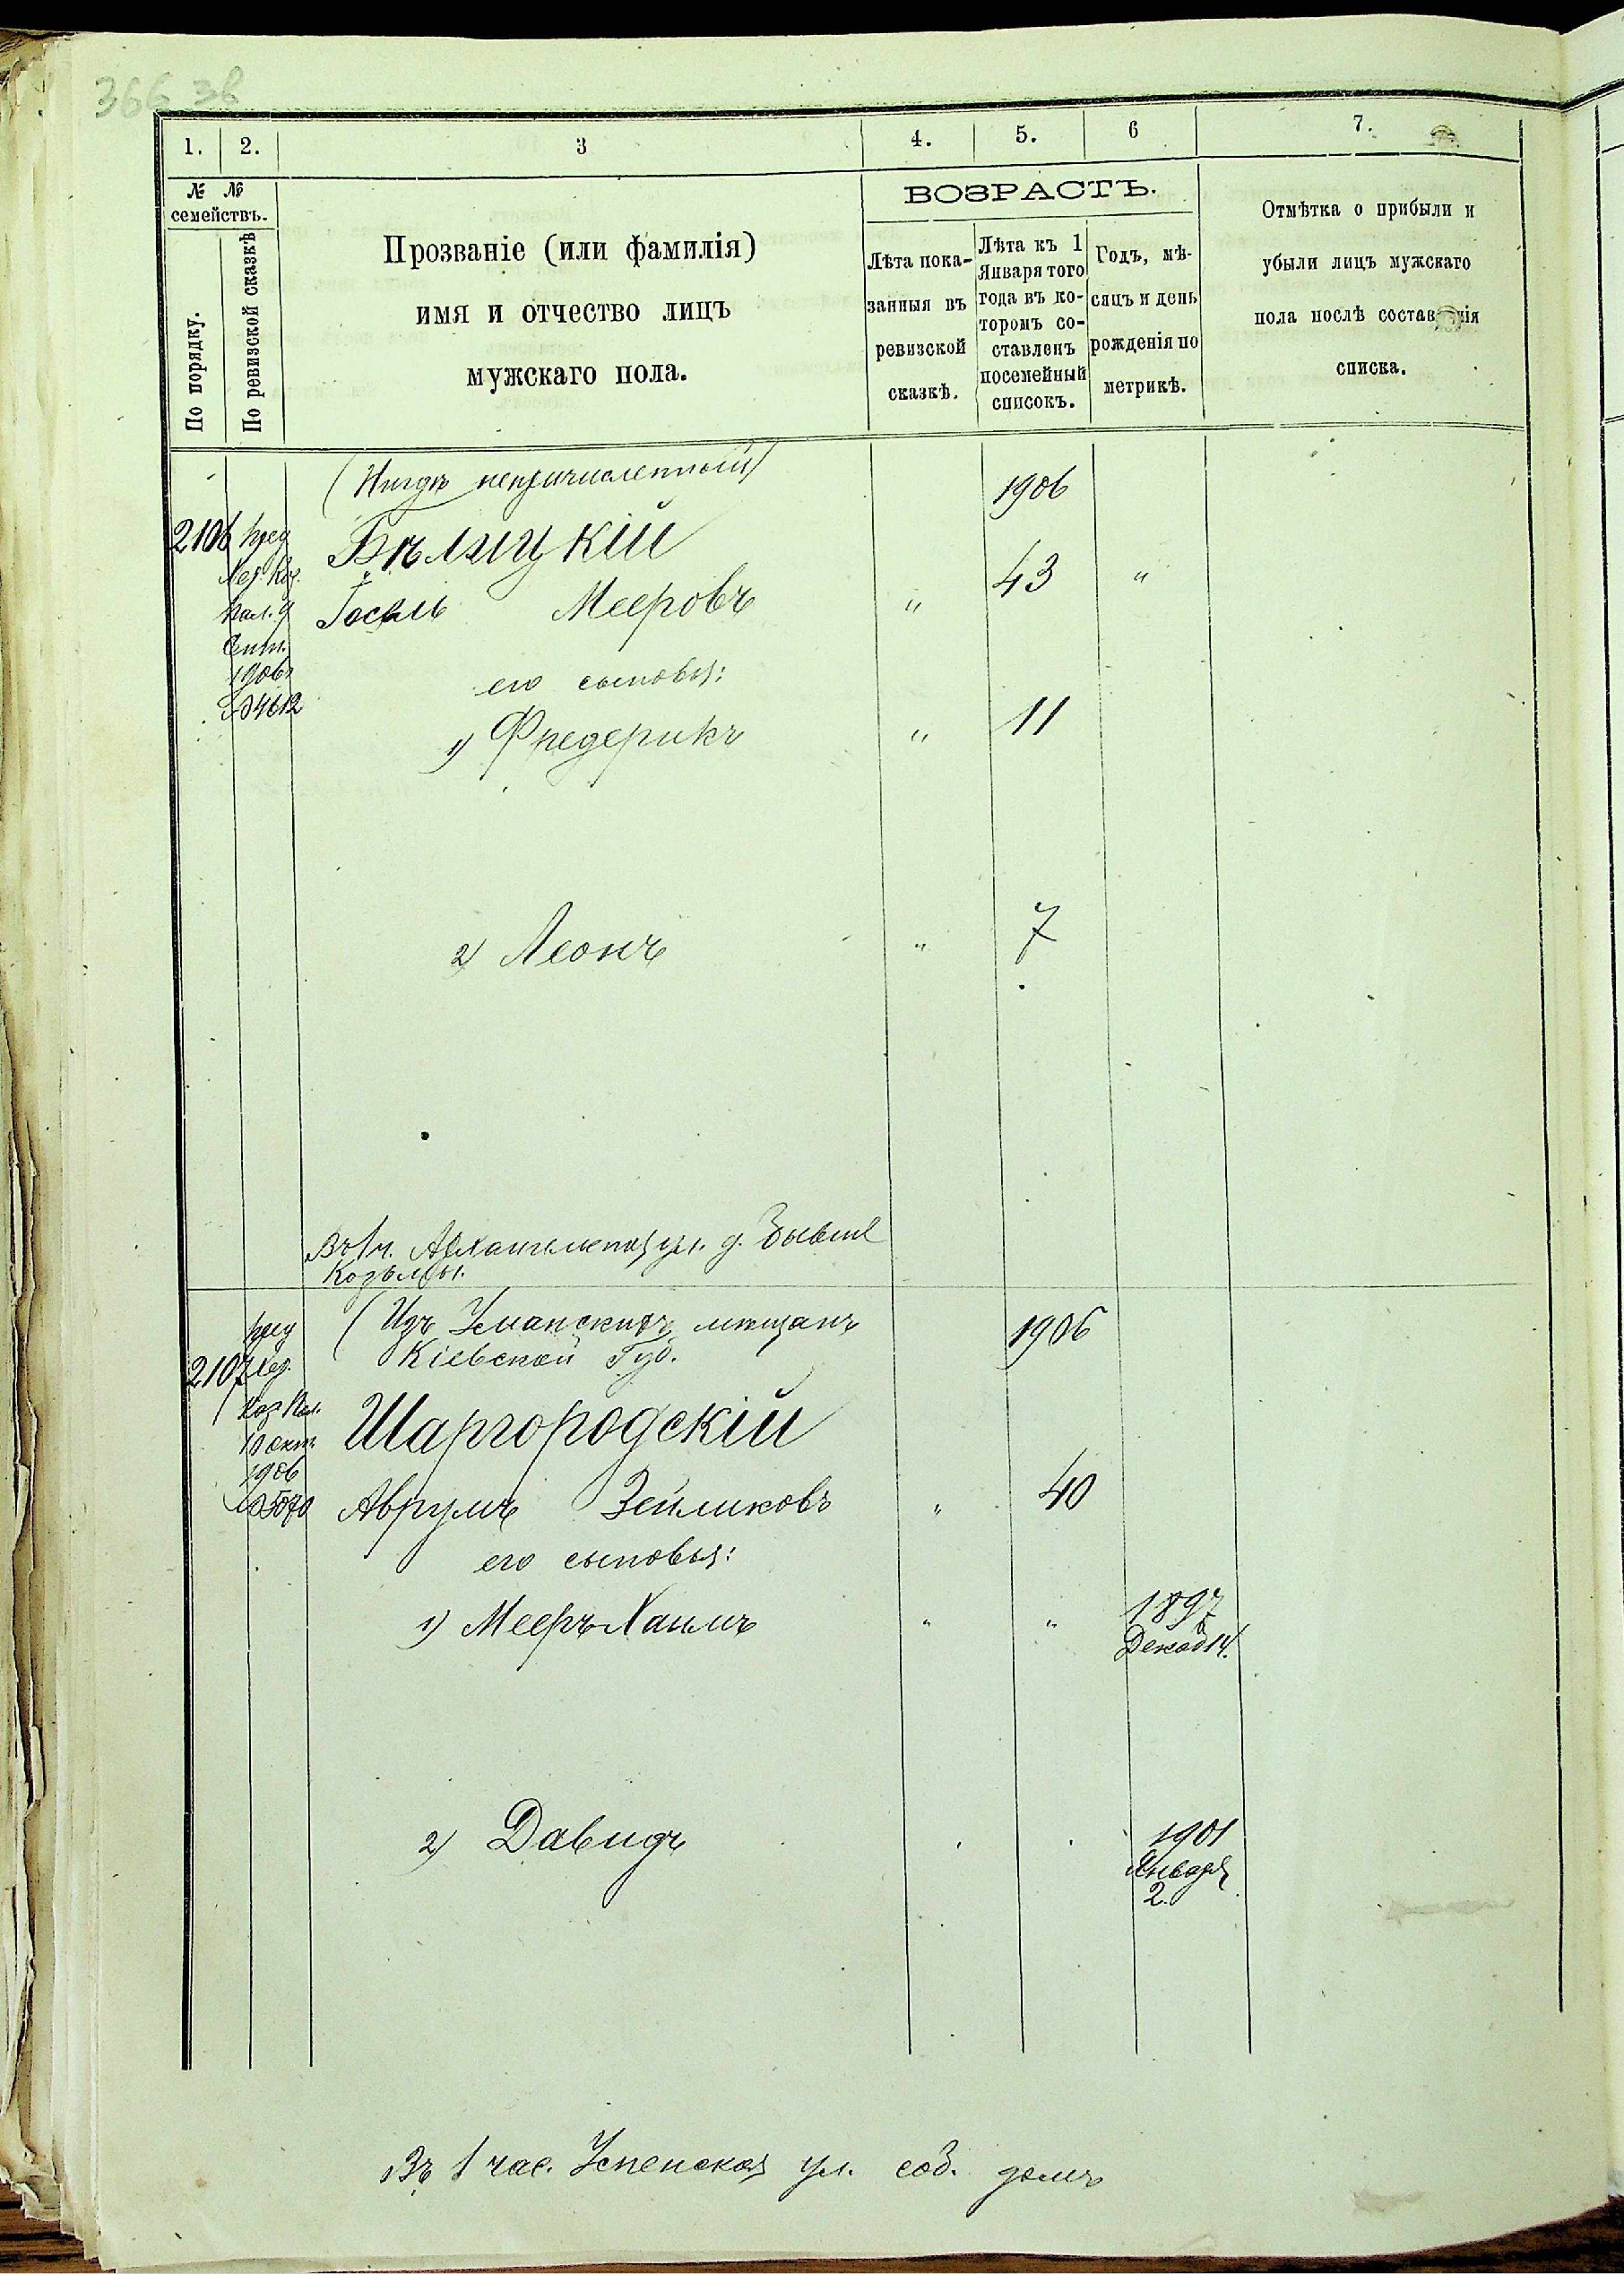 366 зв
1. 2. 3 4. 5. 6 7.
№ № семействъ.
По порядку.
По ревизской сказкѣ
Прозваніе (или фамилія)
имя и отчество лицъ
мужскаго пола.
ВОЗРАСТЪ.
Лѣта пока-
занныя въ
ревизской
сказкѣ.
Лѣта къ 1
Января того
года въ ко-
торомъ со-
ставленъ
посемейный
списокъ.
Годъ, мѣ-
сяцъ и день
рожденія по
метрикѣ.
Отмѣтка о прибыли и
убыли лицъ мужскаго
пола послѣ составленія
списка.
(Нигдѣ непричисленный)
1906
2106 пред
Хер. Каз.
Пал. 9
Сент.
1906
№ 4612
Бѣлицкій
Іосель Мееровъ " 43 "
его сыновья:
1) Фредерикъ " 11
2) Леонъ " 7
Въ 1 ч. Архангельская ул. д. бывш
Козьмы.
2107 пред
Хер.
Каз. Пал.
10 окт.
1906
№ 5070
(Изъ Уманскихъ мѣщанъ
Кіевской Губ.
1906
Шаргородскій
Аврумъ Зейликовъ " 40
его сыновья:
1) Мееръ Хаимъ " " 1897
Декаб 14.
2) Давидъ 1901
Января
2.
Въ 1 час. Успенская ул. соб. домъ